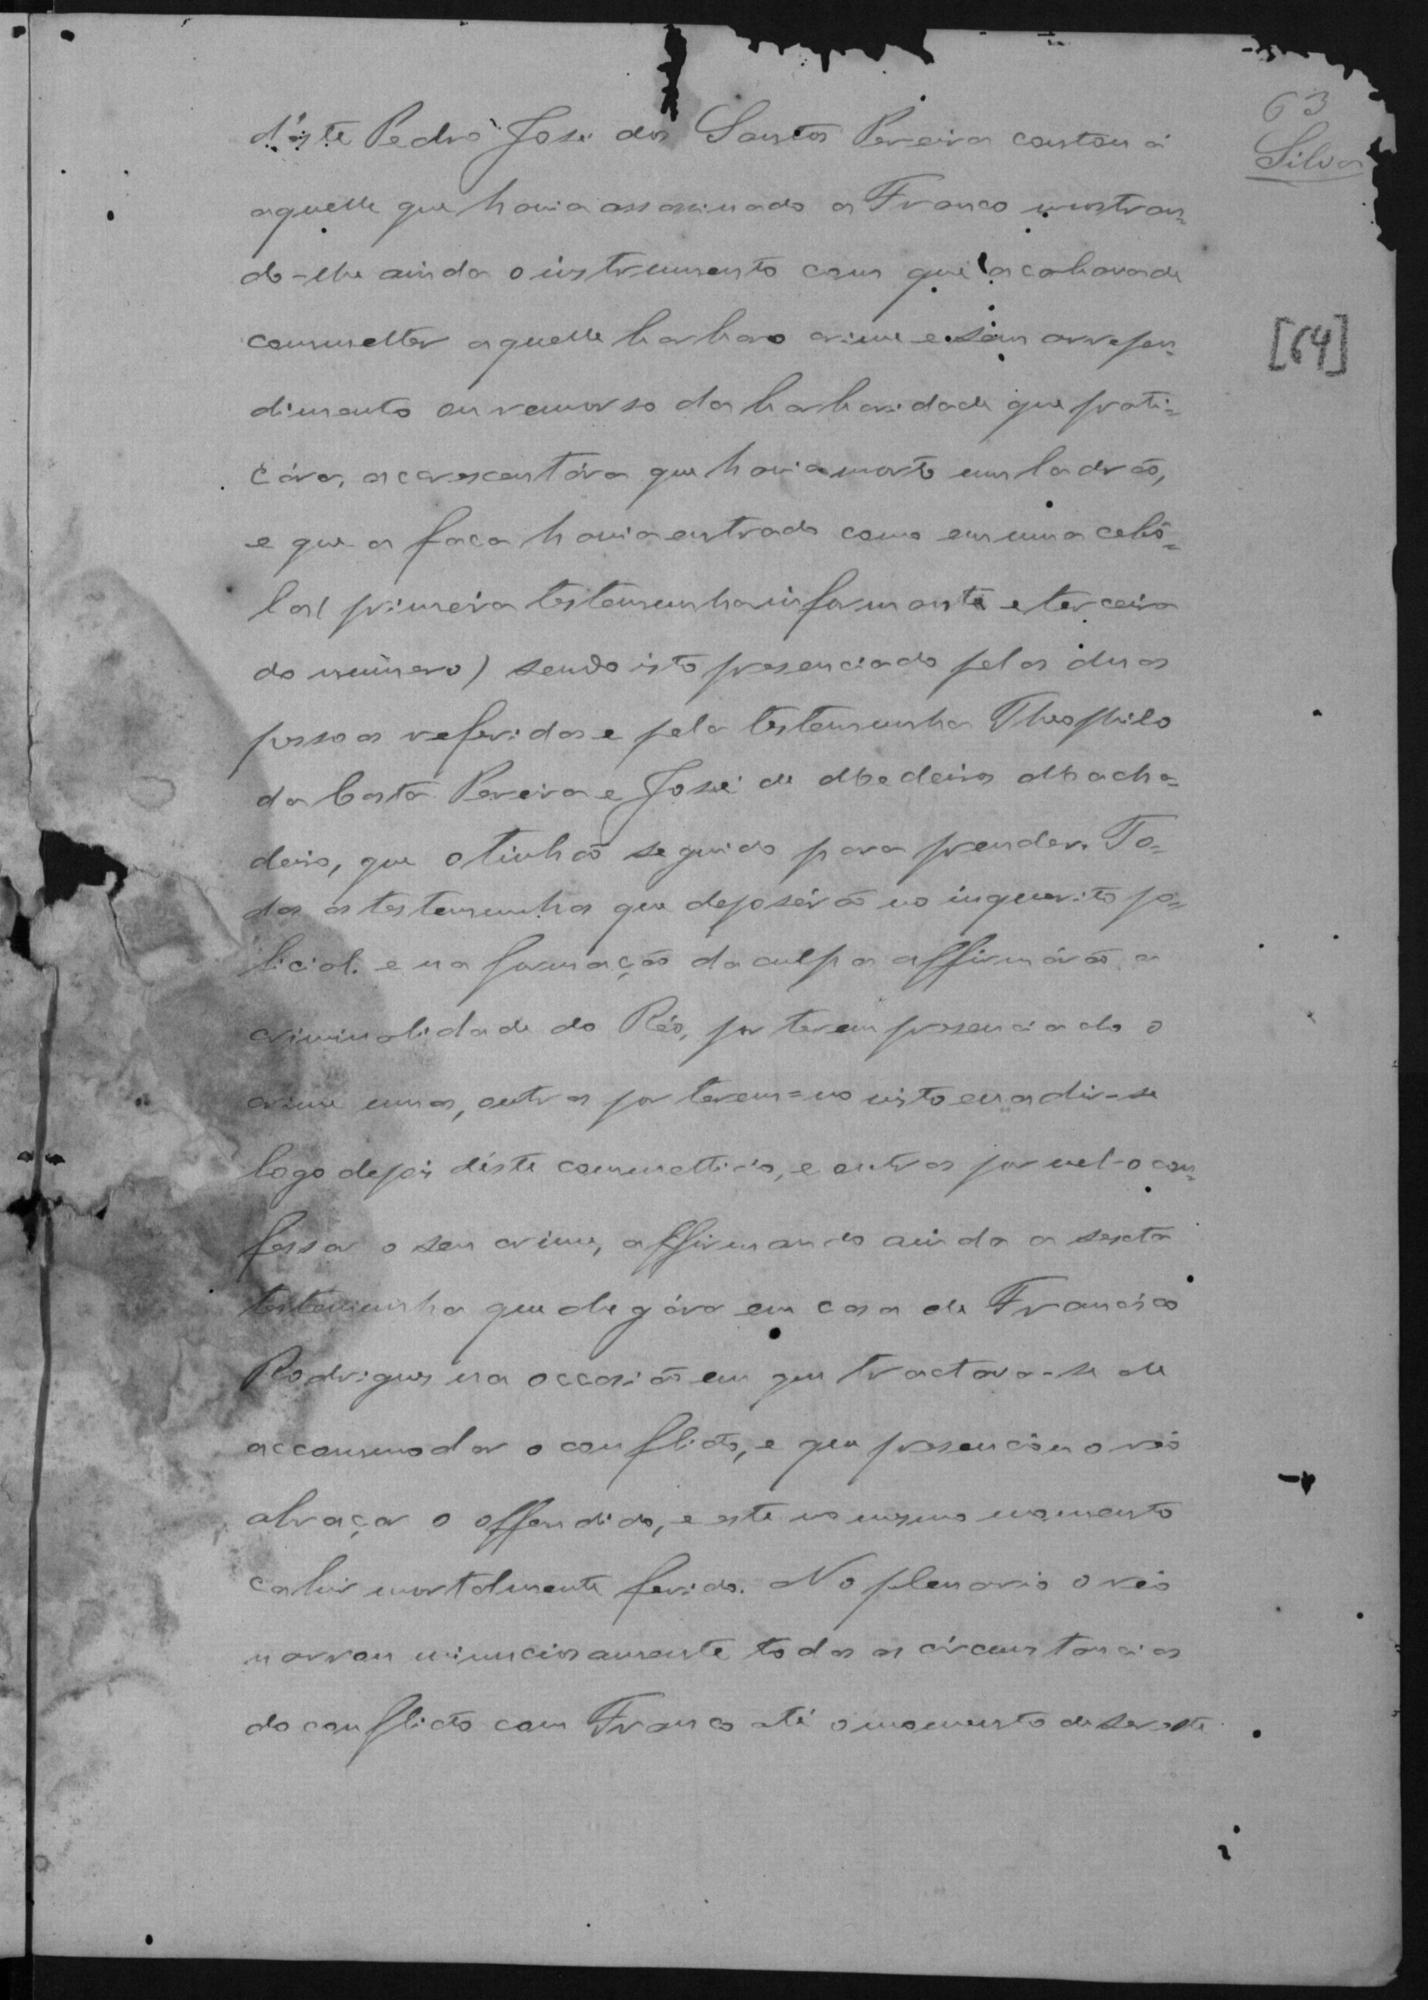 63
Silva
[64]
d'este Pedro José dos Santos Pereira contou á
aquelle que havia assassinado a Franco mostran=
do-lhe ainda o instrumento com que acabava de
commetter aquelle barbaro crime e sem arrepen=
dimento ou remorso da barbaridade que prati=
cára, accrescentára que havia morto um ladrão,
e que a faca havia entrado como em uma cebô=
la (primeira testemunha informante e terceira
do numero) sendo isto presenciado pelas duas
pessoas referidas e pela testemunha Theophilo
da Costa Pereira e José de Medeiros Machа-
deiro, que o tinhão seguido para prender. To=
das as testemunhas que deposérão no inquerito po=
licial e na formação da culpa affirmárão a
criminalidade do Réo, por terem presenciado o
crime umas, outras por terem=no visto evadir-se
logo depois déste commettido, e outras por vel-o con=
fessar o seu crime, affirmando ainda a sexta
testemunha que chegára em casa de Francisco
Rodrigues na occasião em que tractava-se de
accommodar o conflicto, e que presenciou o réo
abraçar o offendido, e este no mesmo momento
cahir mortalmente ferido. No plenario o réo
narrou minuciosamente todas as circumstancias
do conflicto com Franco até o momento de ser este